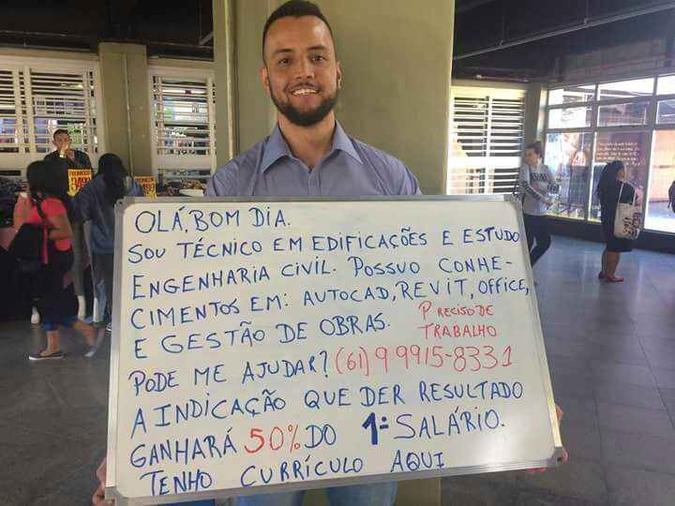 OLÁ, BOM DIA.
SOU TÉCNICO EM EDIFICAÇÕES E ESTUDO
ENGENHARIA CIVIL. POSSUO CONHE-
CIMENTOS EM: AUTOCAD, REVIT, OFFICE,
E GESTÃO DE OBRAS. PRECISO DE
TRABALHO
PODE ME AJUDAR? (61) 9 9915-8331
A INDICAÇÃO QUE DER RESULTADO
GANHARÁ 50% DO 1º SALÁRIO.
TENHO CURRÍCULO AQUI